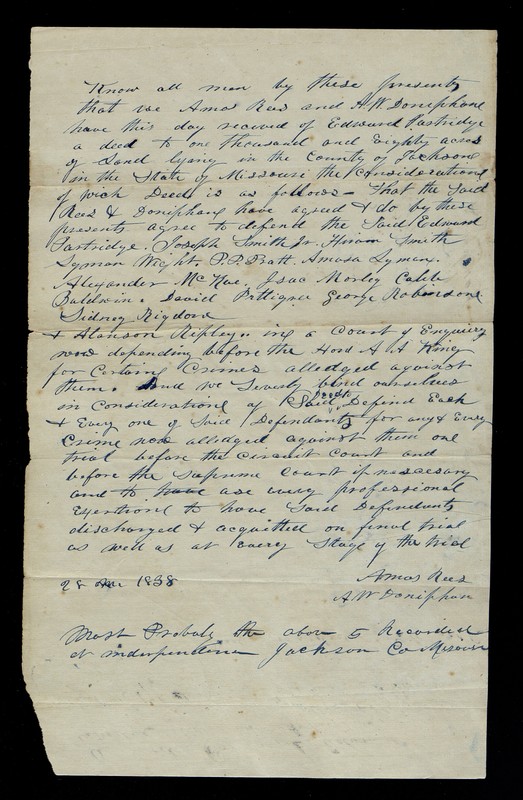 Know all men by these presents
that we Amos Rees and A.W. Doniphane
have this day received of Edward Partridge
a deed to one thousand and Eighty acres
of Land lying in the County of Jackson
in the State of Missouri the Considerations
of wich Deed is as follows - That the Said
Rees & Doniphane have agreed & do by these
presents agree to defend the Said Edward
Partridge. Joseph Smith Jr. Hiram Smith
Lyman Wight. P.P. Pratt. Amasa Lyman.
Alexander McRae. Isac Morley Caleb
Baldwin. David Pettigrew George Robinsone
Sidney Rigdon
& Alanson Ripley. in a Court of Enquirey
now depending before the Hond A A King
for Certaing Crimes alledged against
them. And we Severly bind ourselves
in Considerations of Said Deed Defend Each
& Every one of Said Defendants for any & Every
Crime now alledged against them one
trial before the circuit court and
before the supreme court if nescesary
and to have use every professional
Exertione to have Said Defendants
discharged & acquitted on final trial
as well as at every Stage of the trial
28 1838
Amos Rees
A W Doniphan
Most Probaly the above is Recorded
at independence Jackson Co Misouri